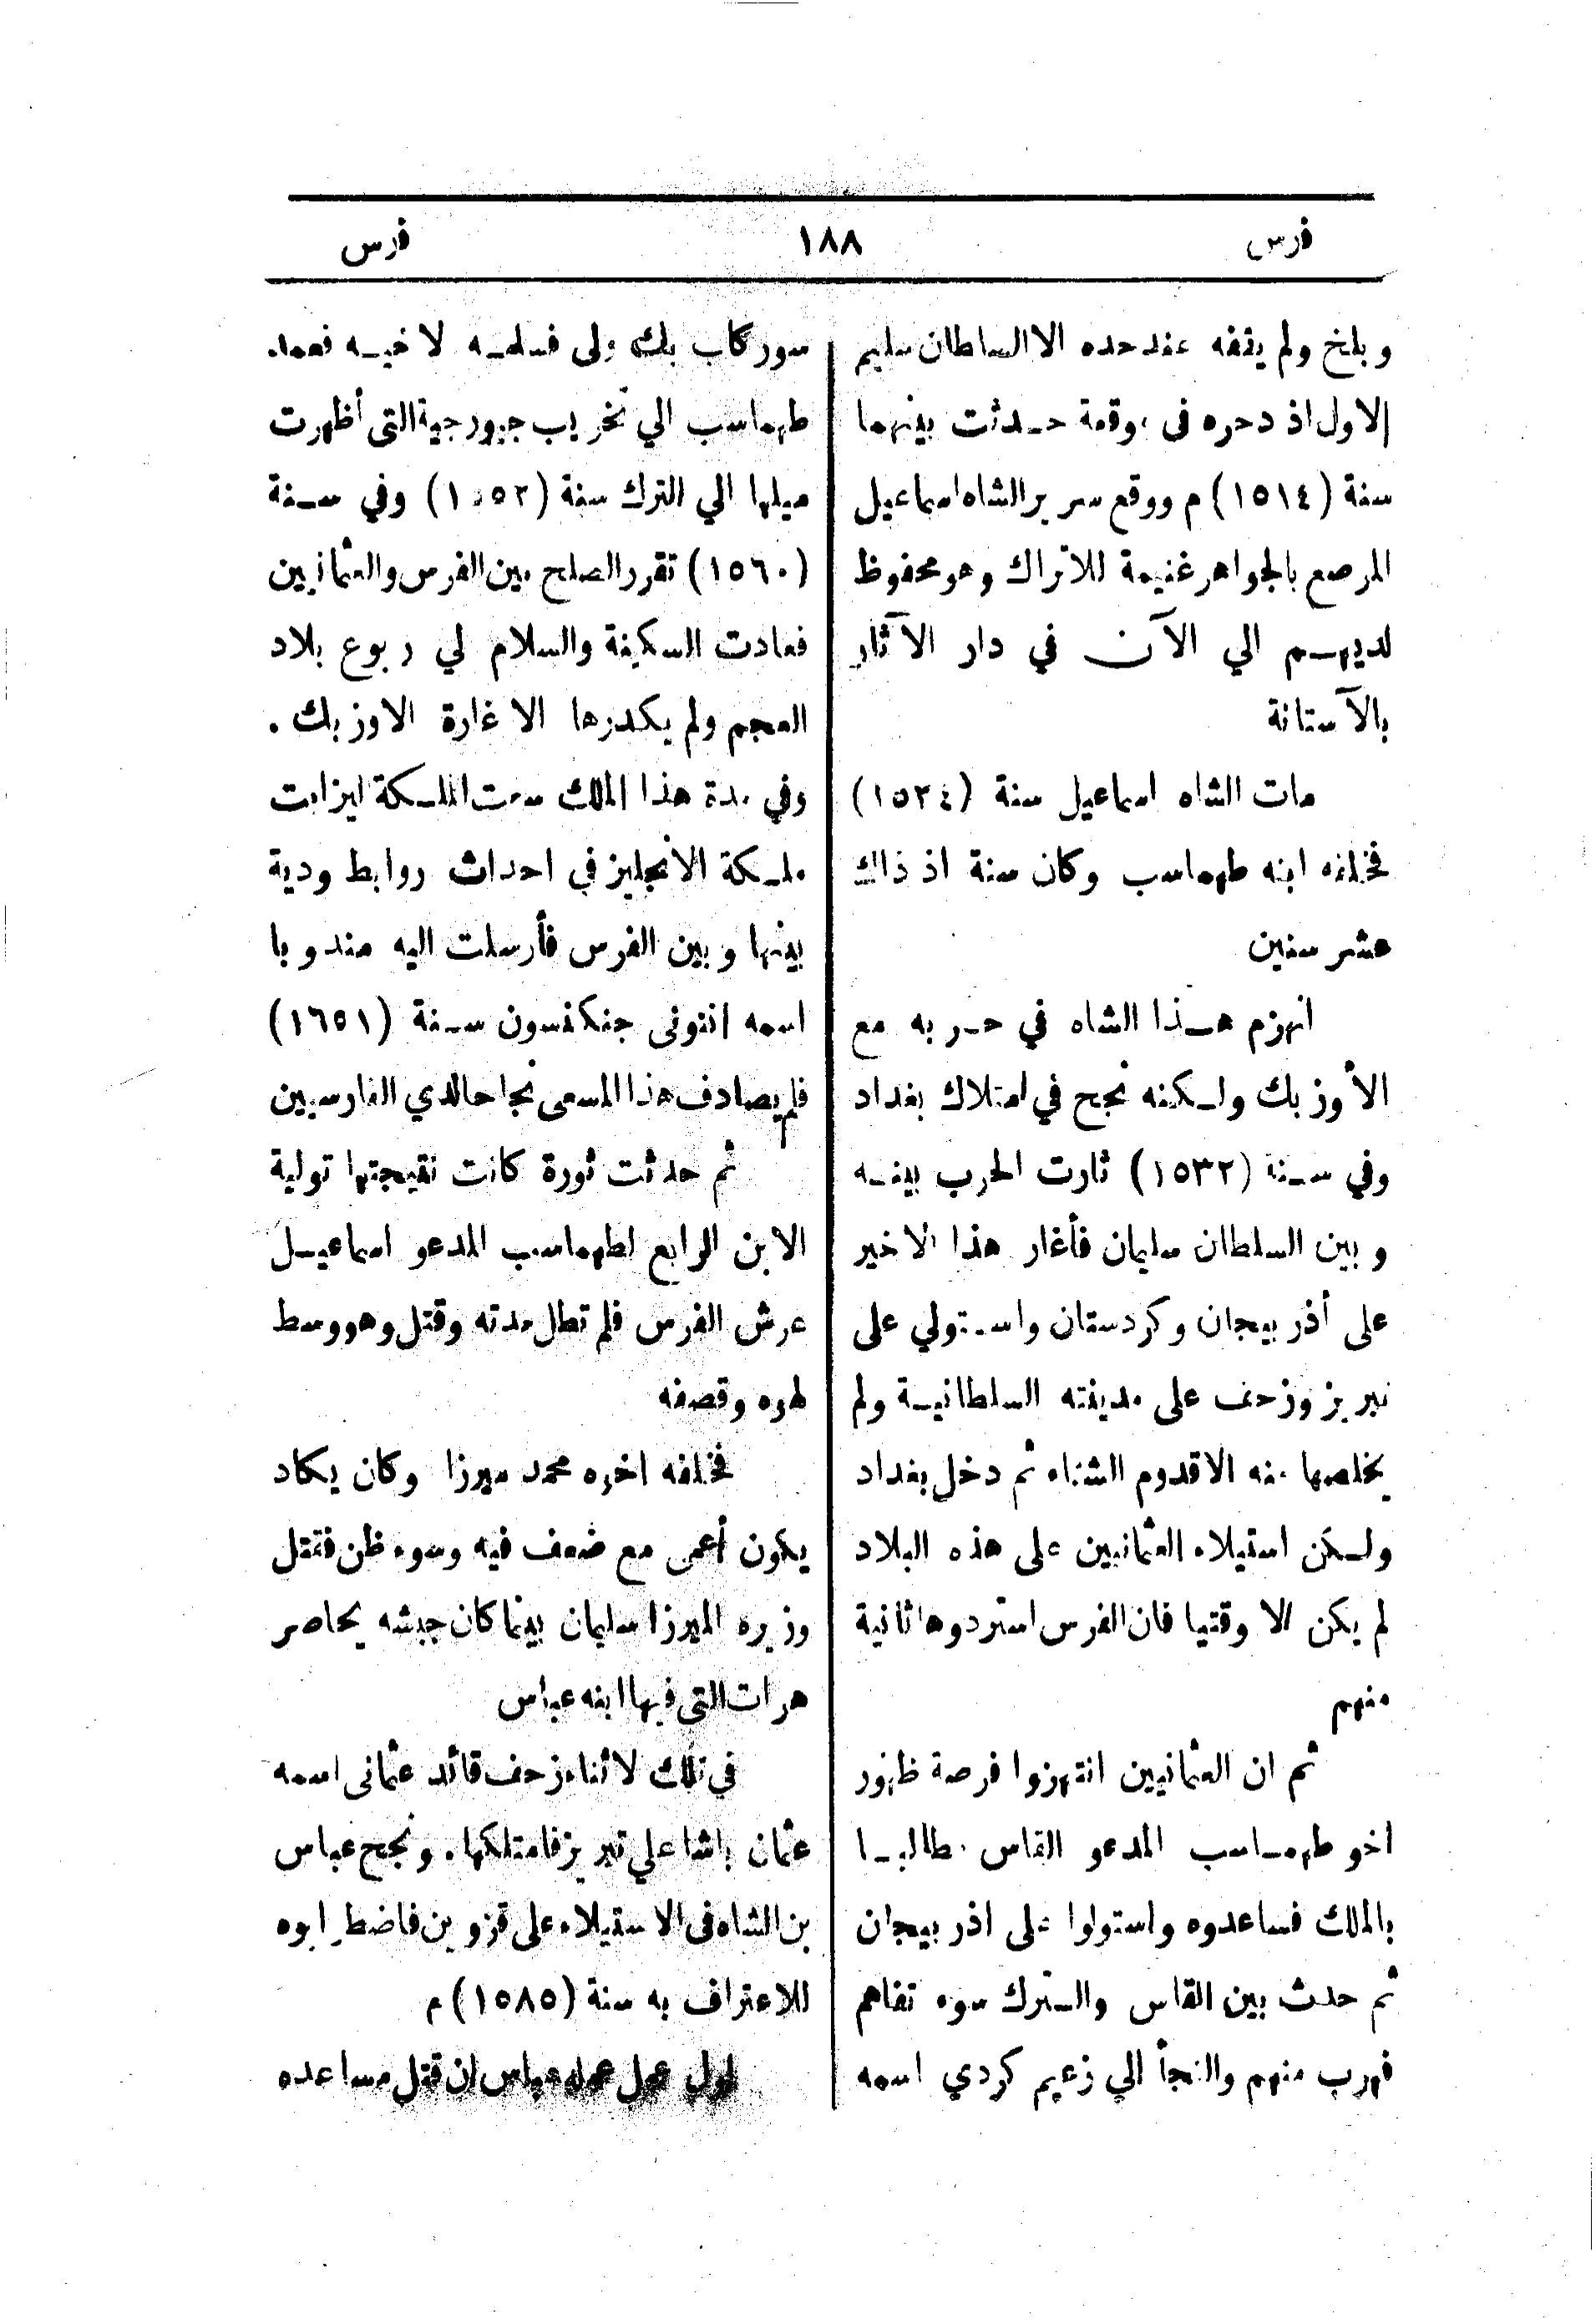 فرس ١٨٨ فرس
وبلخ ولم يقفه عند حده الا السلطان سليم
الاول اذ دحره فى موقعة حدثت بينهما
سنة (١٥١٤) م ووقع سرير الشاه اسماعيل
المرصع بالجواهر غنيمة للاتراك وهو محفوظ
لديهم الي الآن في دار الآثار
بالآستانة
مات الشاه اسماعيل سنة (١٥٢٤)
فخلفه ابنه طهماسب وكان سنة اذ ذاك
عشر سنين
انهزم هذا الشاه في حربه مع
الأوزبك ولكنه نجح في امتلاك بغداد
وفي سنة (١٥٣٢) ثارت الحرب بينه
وبين السلطان سليمان فأغار هذا الاخير
على أذربيجان وكردستان واستولي على
تبريز وزحف على مدينته السلطانية ولم
يخلصها منه الا قدوم الشتاء ثم دخل بغداد
ولكن استيلاء العثمانيين على هذه البلاد
لم يكن الا وقتيا فان الفرس استردوها ثانية
منهم
ثم ان العثمانيين انتهزوا فرصة ظهور
اخو طهماسب المدعو القاس مطالبا
بالملك فساعدوه واستولوا على اذربيجان
ثم حدث بين القاس والترك سوء تفاهم
فهرب منهم والتجأ الي زعيم كردي اسمه
سوركاب بك ولى فسلمه لاخيه فعمد
طهماسب الي تخريب جيورجية التى أظهرت
ميلها الي الترك سنة (١٥٥٢) وفي سنة
(١٥٦٠) تقرر الصلح بين الفرس والعثمانيين
فعادت السكينة والسلام لي ربوع بلاد
العجم ولم يكدرها الا غارة الاوزبك .
وفي مدة هذا الملك سعت الملكة ليزابت
ملكة الانجليز في احداث روابط ودية
بينها وبين الفرس فأرسلت اليه مندوبا
اسمه انتونى جنكنسون سنة (١٦٥١)
فلم يصادف هذا المسعى نجاحا لدي الفارسيين
ثم حدثت ثورة كانت نتيجتها تولية
الابن الرابع لطهماسب المدعو اسماعيل
عرش الفرس فلم تطل مدته وقتل وهو وسط
لهوه وقصفه
فخلفه اخوه محمد ميرزا وكان يكاد
يكون أعمى مع ضعف فيه وسوء ظن فقتل
وزيره الميرزا سليمان بينما كان جيشه يحاصر
هرات التى فيها ابنه عباس
في تلك لاثناء زحف قائد عثمانى اسمه
عثمان باشا علي تبريز فامتلكها . ونجح عباس
بن الشاه فى الاستيلاء على قزوين فاضطر ابوه
للاعتراف به سنة (١٥٨٥) م
اول عمل عمله عباس ان قتل مساعده